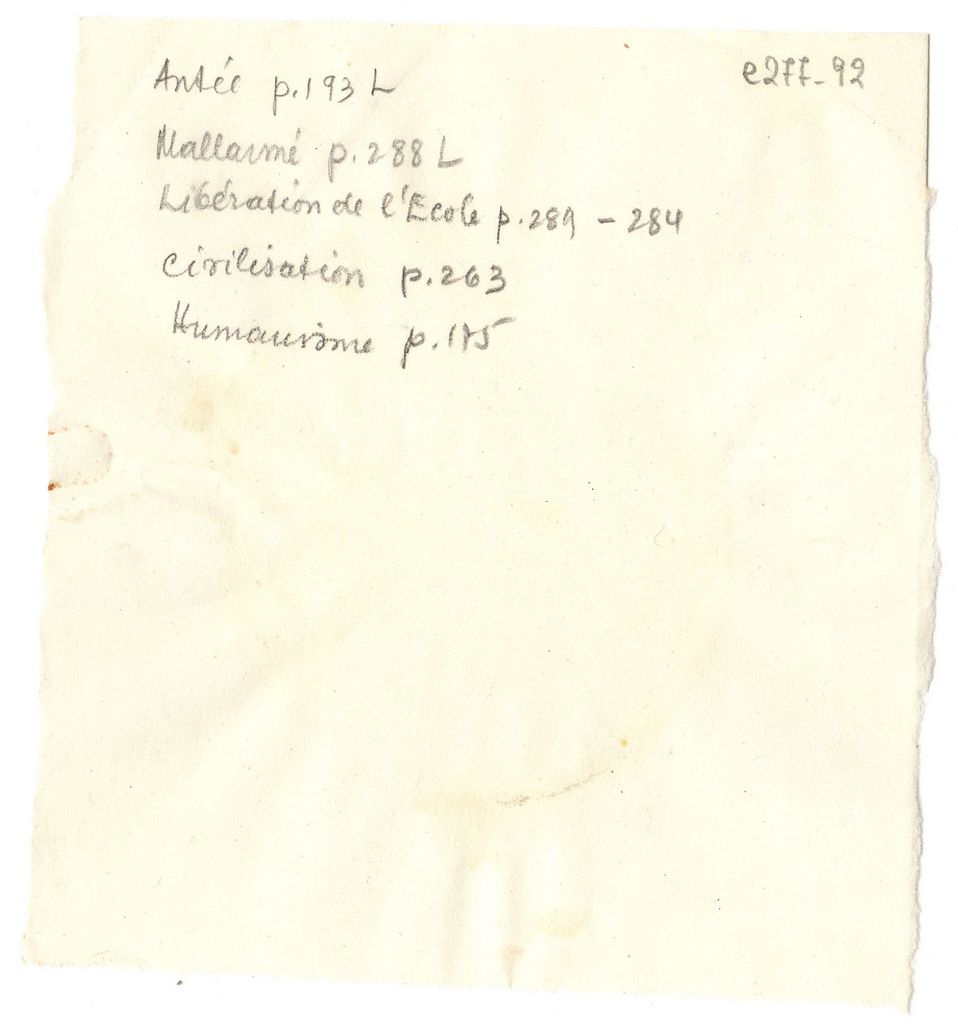 Antée p.193 L
e277-92
Mallarmé p.288 L
Libération de l'Ecole p.281 - 284
civilisation p.263
Humanisme p.175